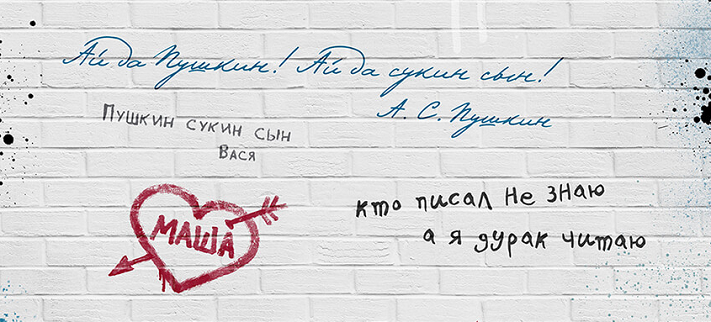 Ай да Пушкин! Ай да сукин сын!
А. С. Пушкин
Пушкин сукин сын
Вася
МАША
кто писал не знаю
а я дурак читаю